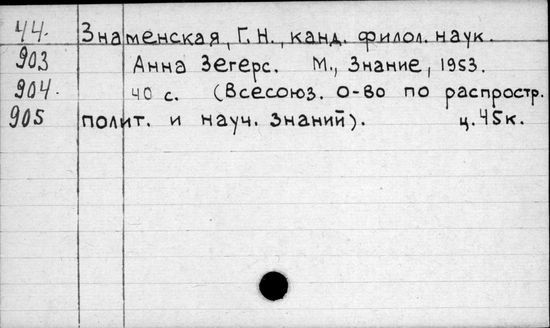 44. Знаменская, Г.Н., канд. филол. наук.
903 Анна Зегерс. М., Знание, 1953.
904. 40 с. (Всесоюз. о-во по распростр.
905 полит. и науч. знаний). ц. 45к.